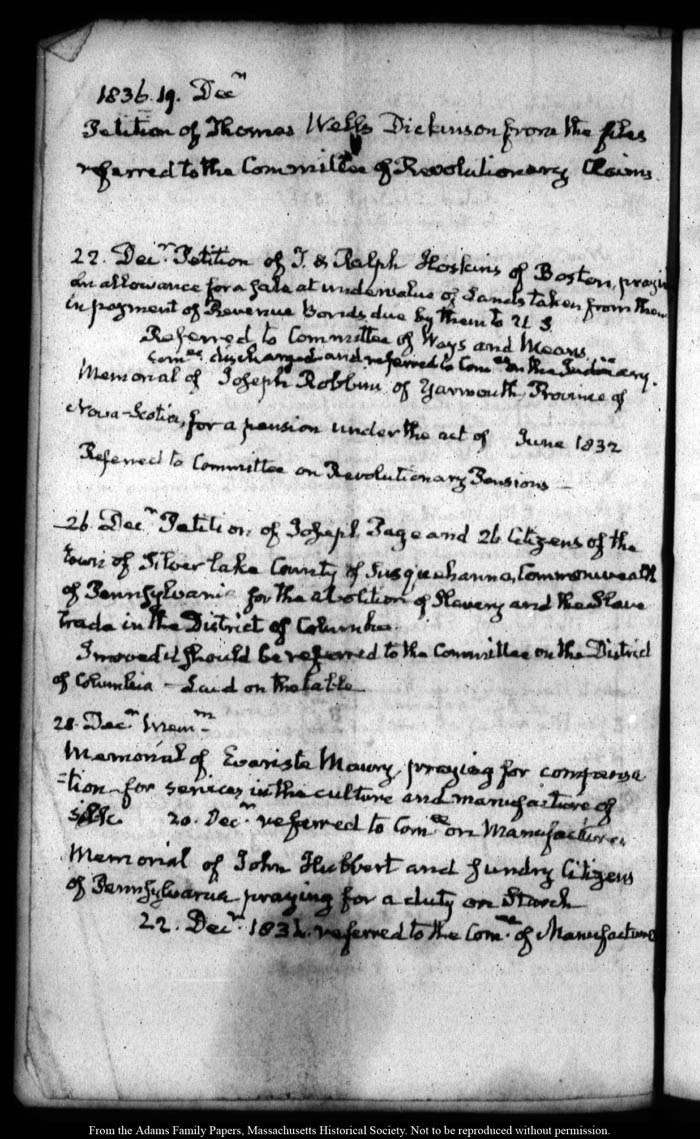 1836. 19. Decr
Petition of Thomas Wells Dickinson from the files
referred to the Committee of Revolutionary Claims.
22. Decr. Petition of T. & Ralph Hoskins of Boston, prayin
an allowance for a sale at undervalue of Lands taken from them
in payment of Revenue Bonds due by them to U S.
Referred to Committee of Ways and Means.
Comee. discharged and referred to Comee on the Judiciary.
Memorial of Joseph Robbins of Yarmouth, Province of
Nova-Scotia, for a pension under the act of June 1832
Referred to Committee on Revolutionary Pensions —
26 Decr. Petition of Joseph Page and 26 Citizens of the
town of Silver lake County of Susquehanna, Commonwealth
of Pennsylvania for the abolition of Slavery and the Slave
trade in the District of Columbia.
I moved it should be referred to the Committee on the District
of Columbia — Laid on the table
28. Decr Memm.
Memorial of Evariste Maury, praying for compensa
=tion for services in the culture and manufacture of
silk. 20. Decr. referred to Comee on Manufactures
Memorial of John Hubbert and sundry Citizens
of Pennsylvania praying for a duty on Starch
22. Decr. 1836. referred to the Comee. of Manufactures
From the Adams Family Papers, Massachusetts Historical Society. Not to be reproduced without permission.